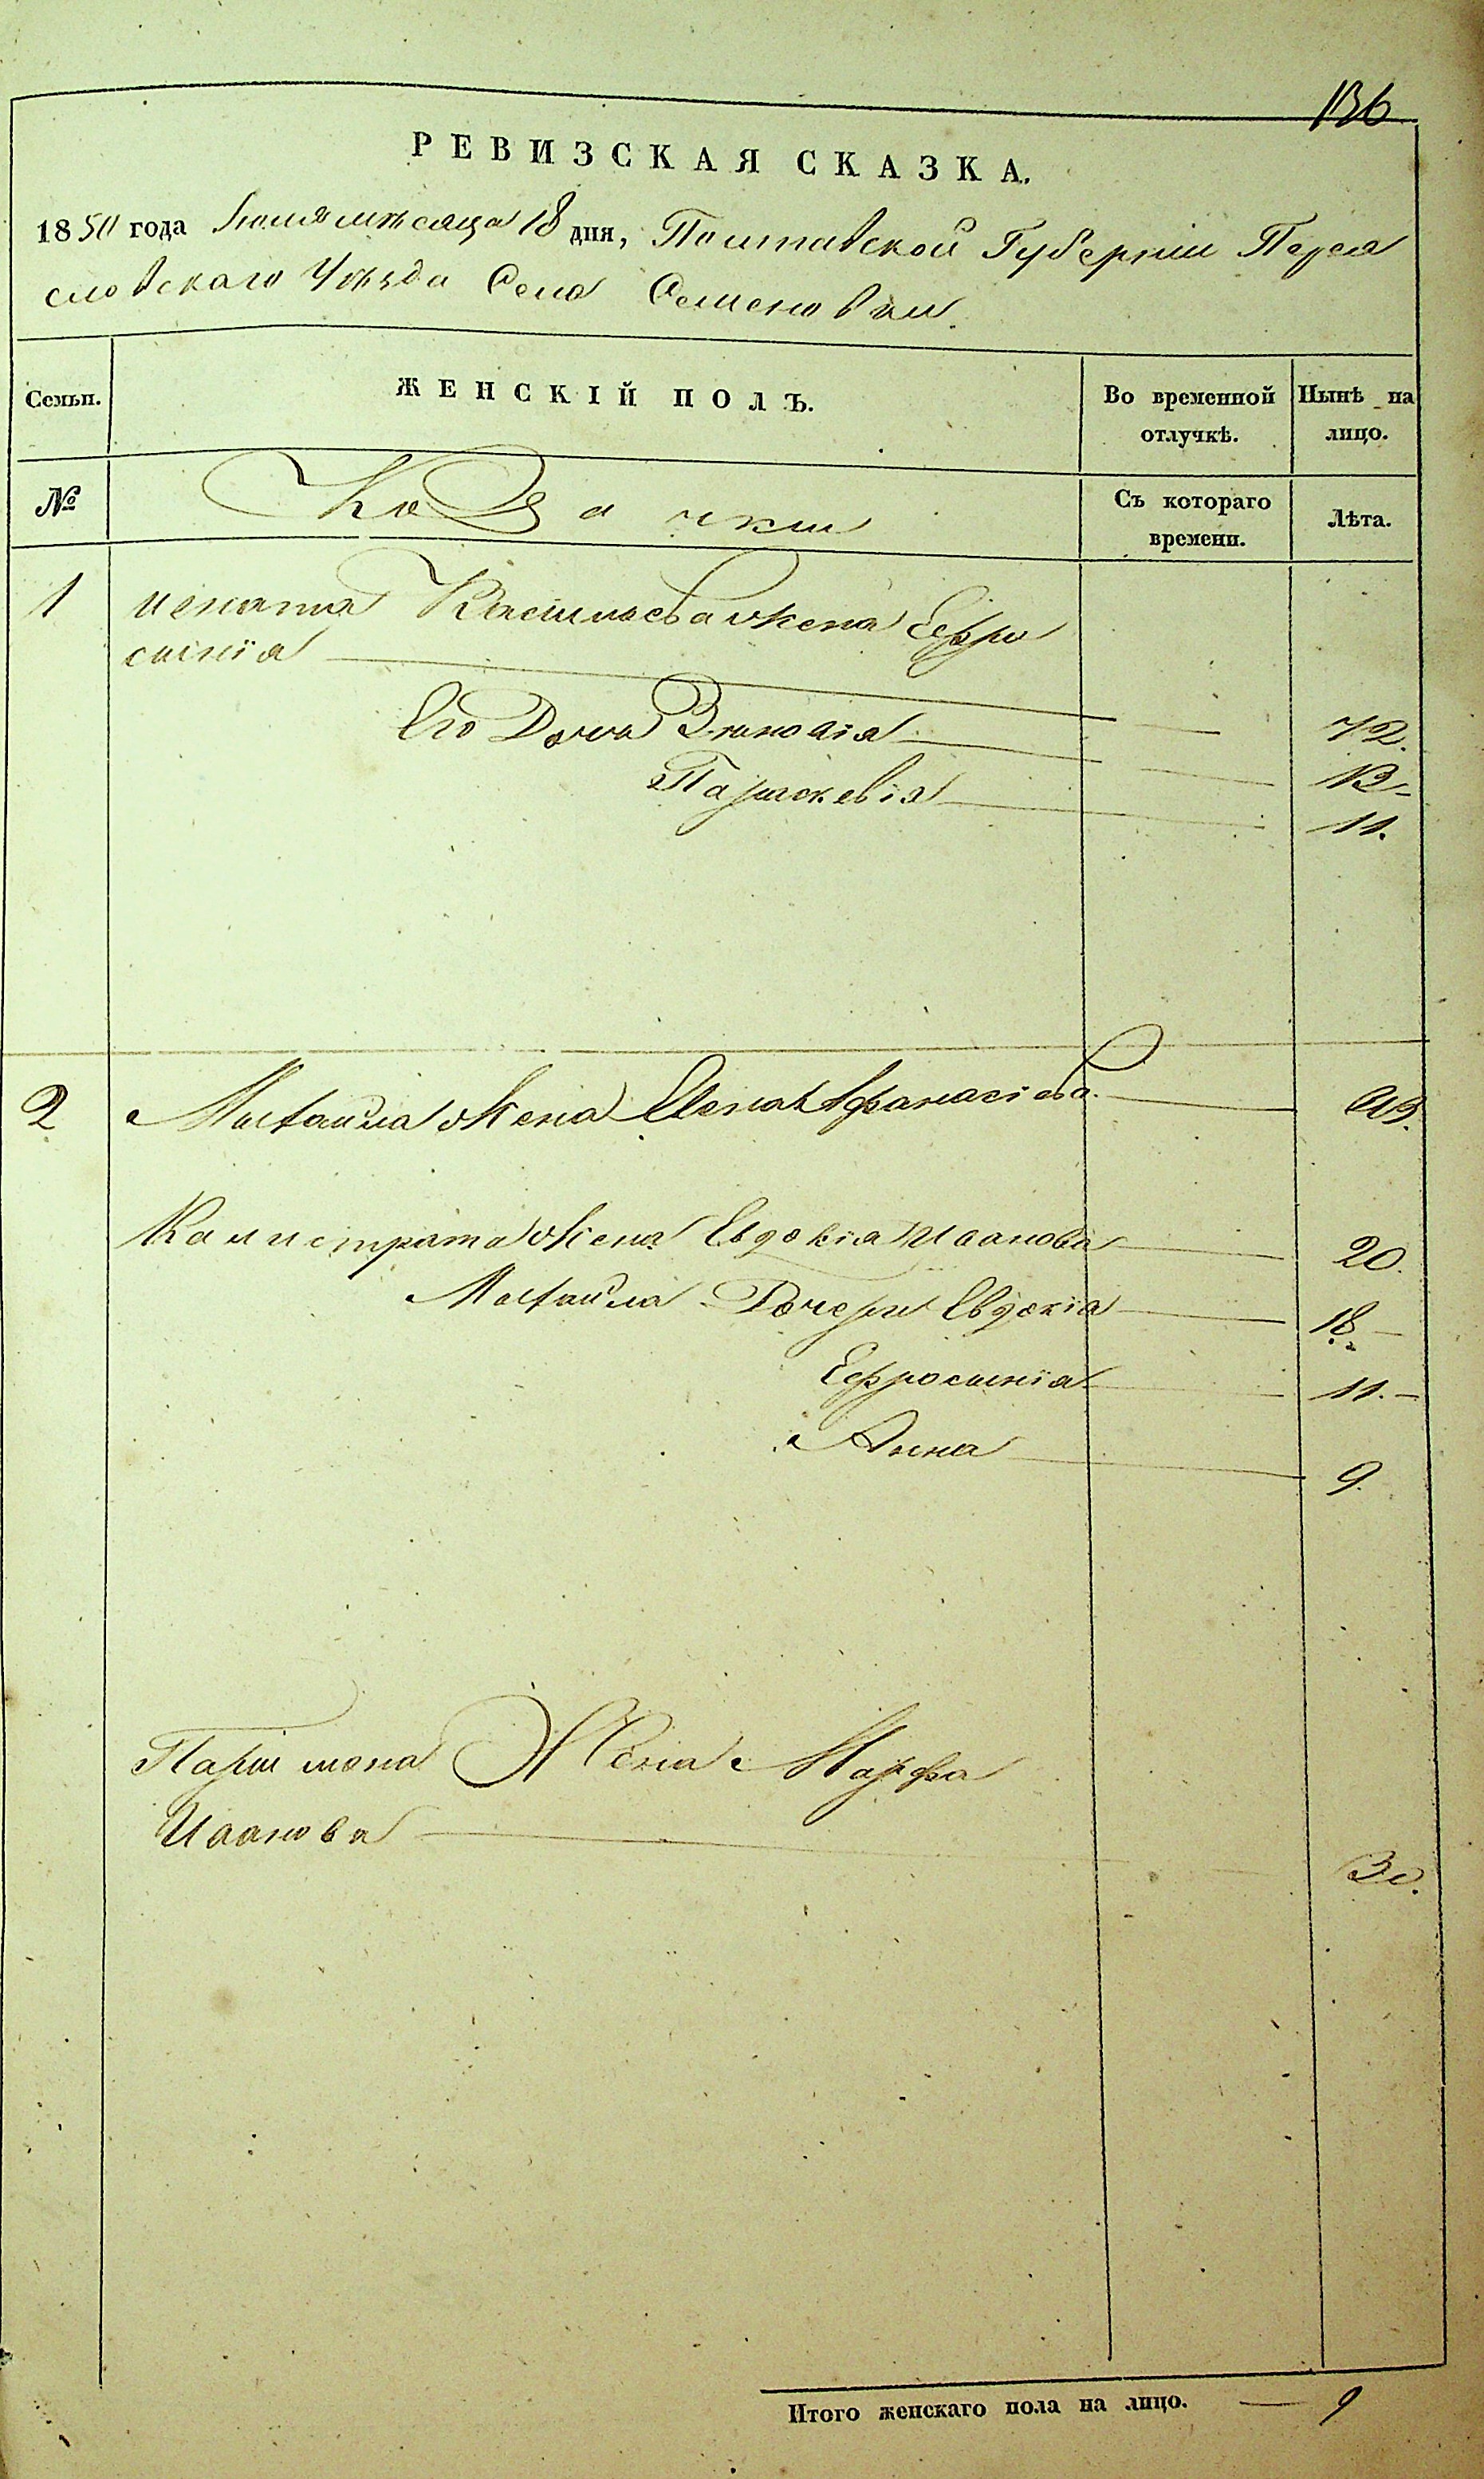 136
РЕВИЗСКАЯ СКАЗКА.
1850 года Іюля мѣсяца 18 дня, Полтавской Губерніи Перея
словскаго Уѣзда Села Семеновки
Семьи.
ЖЕНСКІЙ ПОЛЪ.
Во временной отлучкѣ.
Нынѣ на лицо.
№
Козачки
Съ котораго времени.
Лѣта.
1
Игната Васильева жена Ефро
синія 42.
Его Дочь Зиновія 13
Параскевія 11.
2
Михайла жена Елена Афанасіева
Калистрата жена Евдокія Иванова 20.
Михайла Дочери Евдокія 18
Ефросинія 11.
Анна 9.
Паримона Жена Марфа
Иванова 30.
Итого женскаго пола на лицо. 9